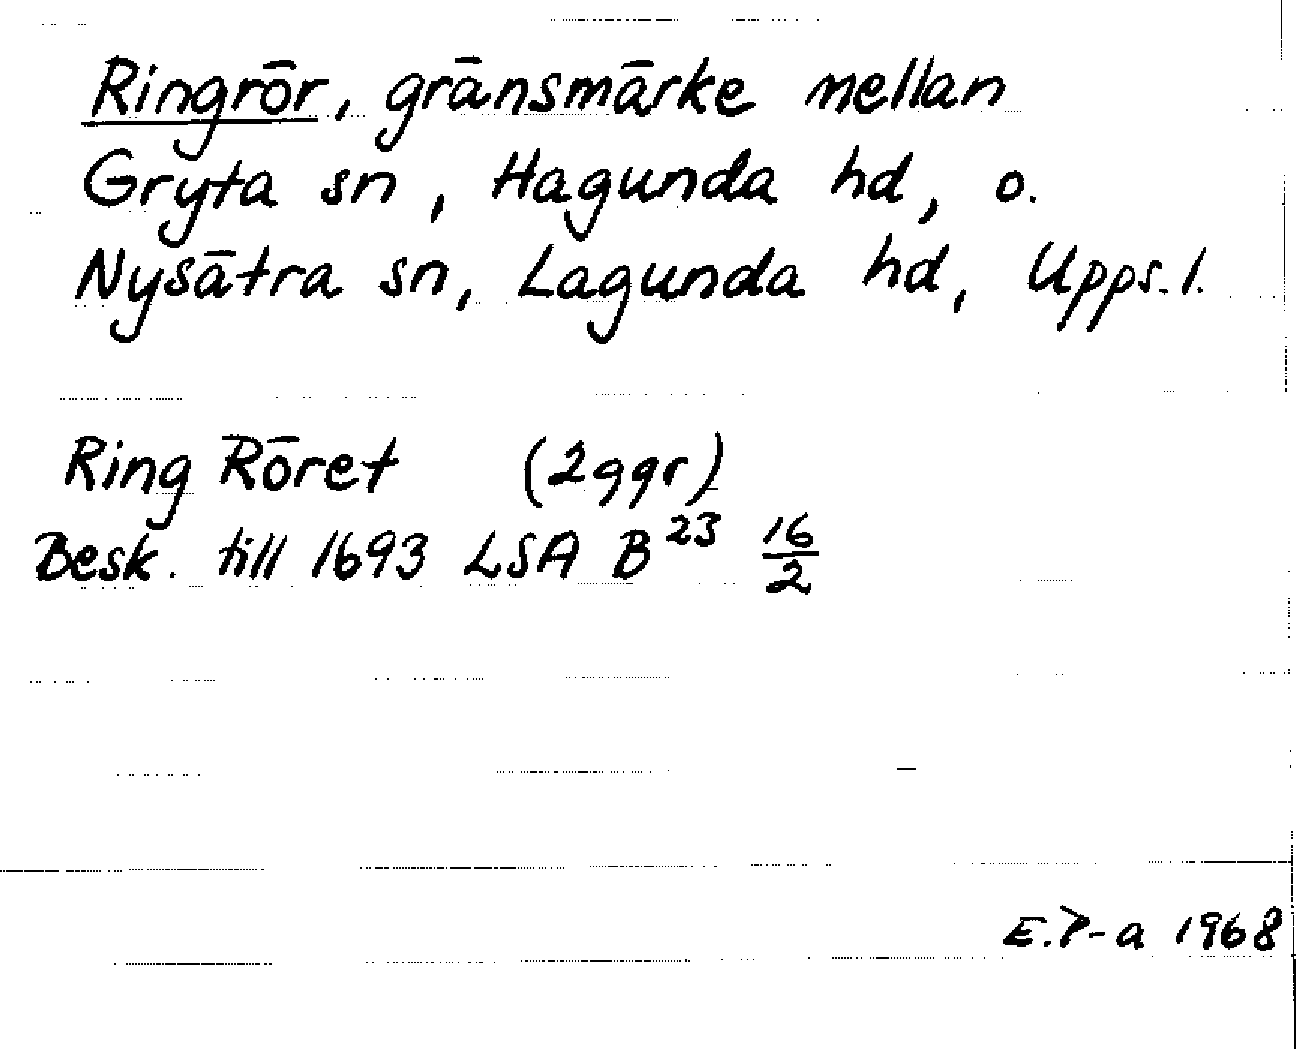 Ringrör, gränsmärke mellan
Gryta sn, Hagunda hd, o.
Nysätra sn, Lagunda hd, Upps. l.
Ring Röret (2 ggr)
Besk. till 1693 LSA B²³ 16/2
E.P-a 1968